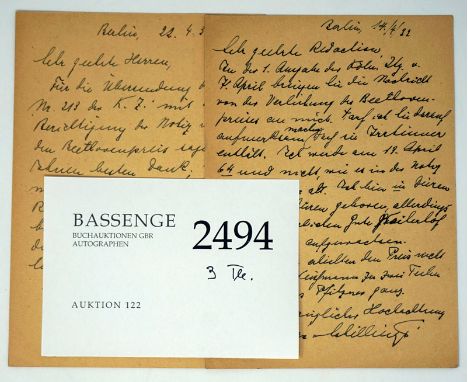 Berlin, 22. 4. 3
Sehr geehrte Herren,
Für die Übersendung d
Nr. 213 der K. Z. mit
Berichtigung der Notiz
den Beethovenpreis sage
Ihnen besten Dank,
Berlin, 14/4/32
Sehr geehrte Redaktion,
In der 1. Ausgabe der Köln. Ztg. v.
7. April bringen Sie die Nachricht
von der Verleihung des Beethoven-
preises an mich. Darf ich Sie darauf
aufmerksam machen, daß Irrtümer
enthält. Ich werde am 19. April
64 und nicht, wie es in der Notiz
alt. Ich bin in Düren
geboren, allerdings
aufgewachsen.
den Preis nicht
zu zwei Teilen
Pfitzner ganz.
Hochachtung
Schillings
BASSENGE
BUCHAUKTIONEN GBR
AUTOGRAPHEN
2494
3 Tle.
AUKTION 122